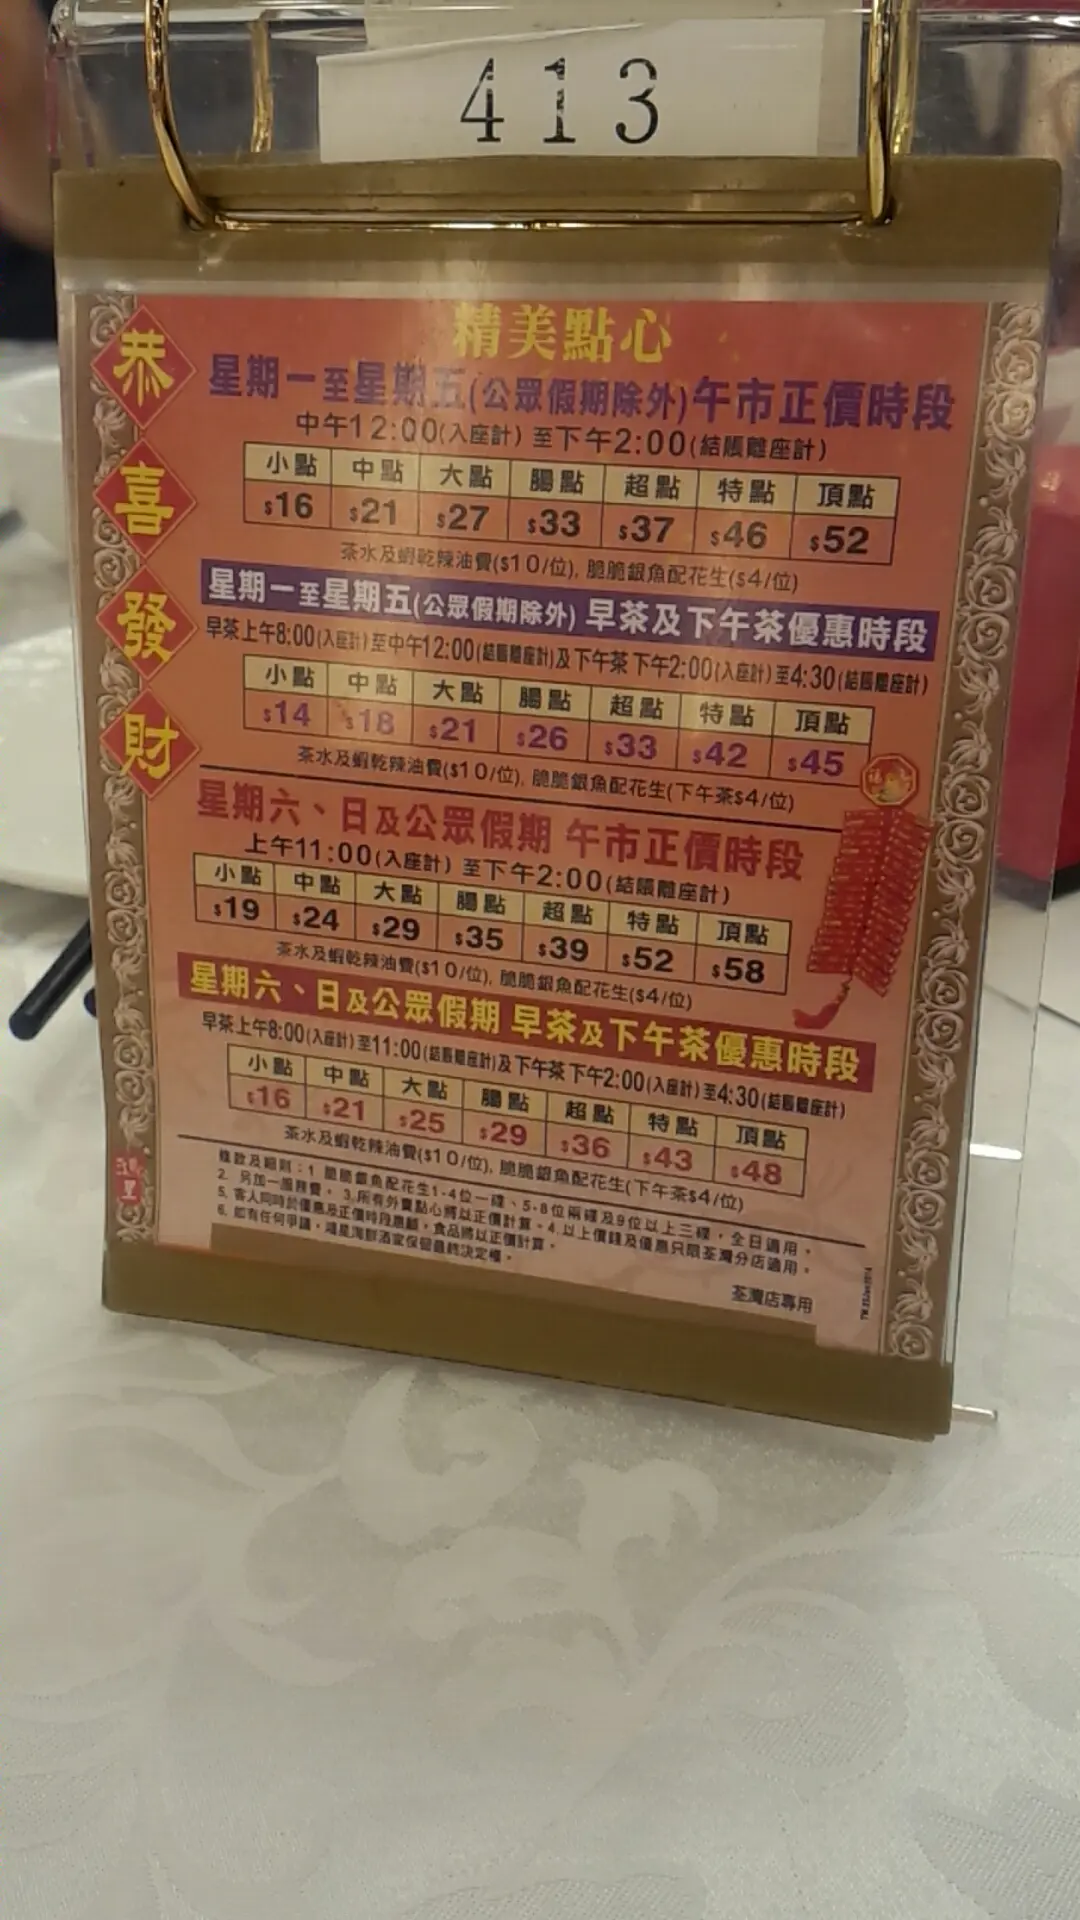 413
恭喜發財
精美點心
星期一至星期五(公眾假期除外)午市正價時段
中午12:00(入座計) 至下午2:00(結賬離座計)
小點 中點 大點 腸點 超點 特點 頂點
$16 $21 $27 $33 $37 $46 $52
茶水及蝦乾辣油費($10/位), 脆脆銀魚配花生($4/位)
星期一至星期五(公眾假期除外) 早茶及下午茶優惠時段
早茶上午8:00(入座計)至中午12:00(結賬離座計)及下午茶 下午2:00(入座計)至4:30(結賬離座計)
小點 中點 大點 腸點 超點 特點 頂點
$14 $18 $21 $26 $33 $42 $45
茶水及蝦乾辣油費($10/位), 脆脆銀魚配花生(下午茶$4/位)
星期六、日及公眾假期 午市正價時段
上午11:00(入座計) 至下午2:00(結賬離座計)
小點 中點 大點 腸點 超點 特點 頂點
$19 $24 $29 $35 $39 $52 $58
茶水及蝦乾辣油費($10/位), 脆脆銀魚配花生($4/位)
星期六、日及公眾假期 早茶及下午茶優惠時段
早茶上午8:00(入座計)至11:00(結賬離座計)及下午茶 下午2:00(入座計)至4:30(結賬離座計)
小點 中點 大點 腸點 超點 特點 頂點
$16 $21 $25 $29 $36 $43 $48
茶水及蝦乾辣油費($10/位), 脆脆銀魚配花生(下午茶$4/位)
條款及細則：1. 脆脆銀魚配花生1-4位一碟、5-8位兩碟及9位以上三碟，全日適用。
2. 另加一服務費。 3.所有外賣點心將以正價計算。4.以上價錢及優惠只限荃灣分店適用。
5. 客人同時於優惠及正價時段惠顧，食品將以正價計算。
6. 如有任何爭議，鴻星海鮮酒家保留最終決定權。
荃灣店專用